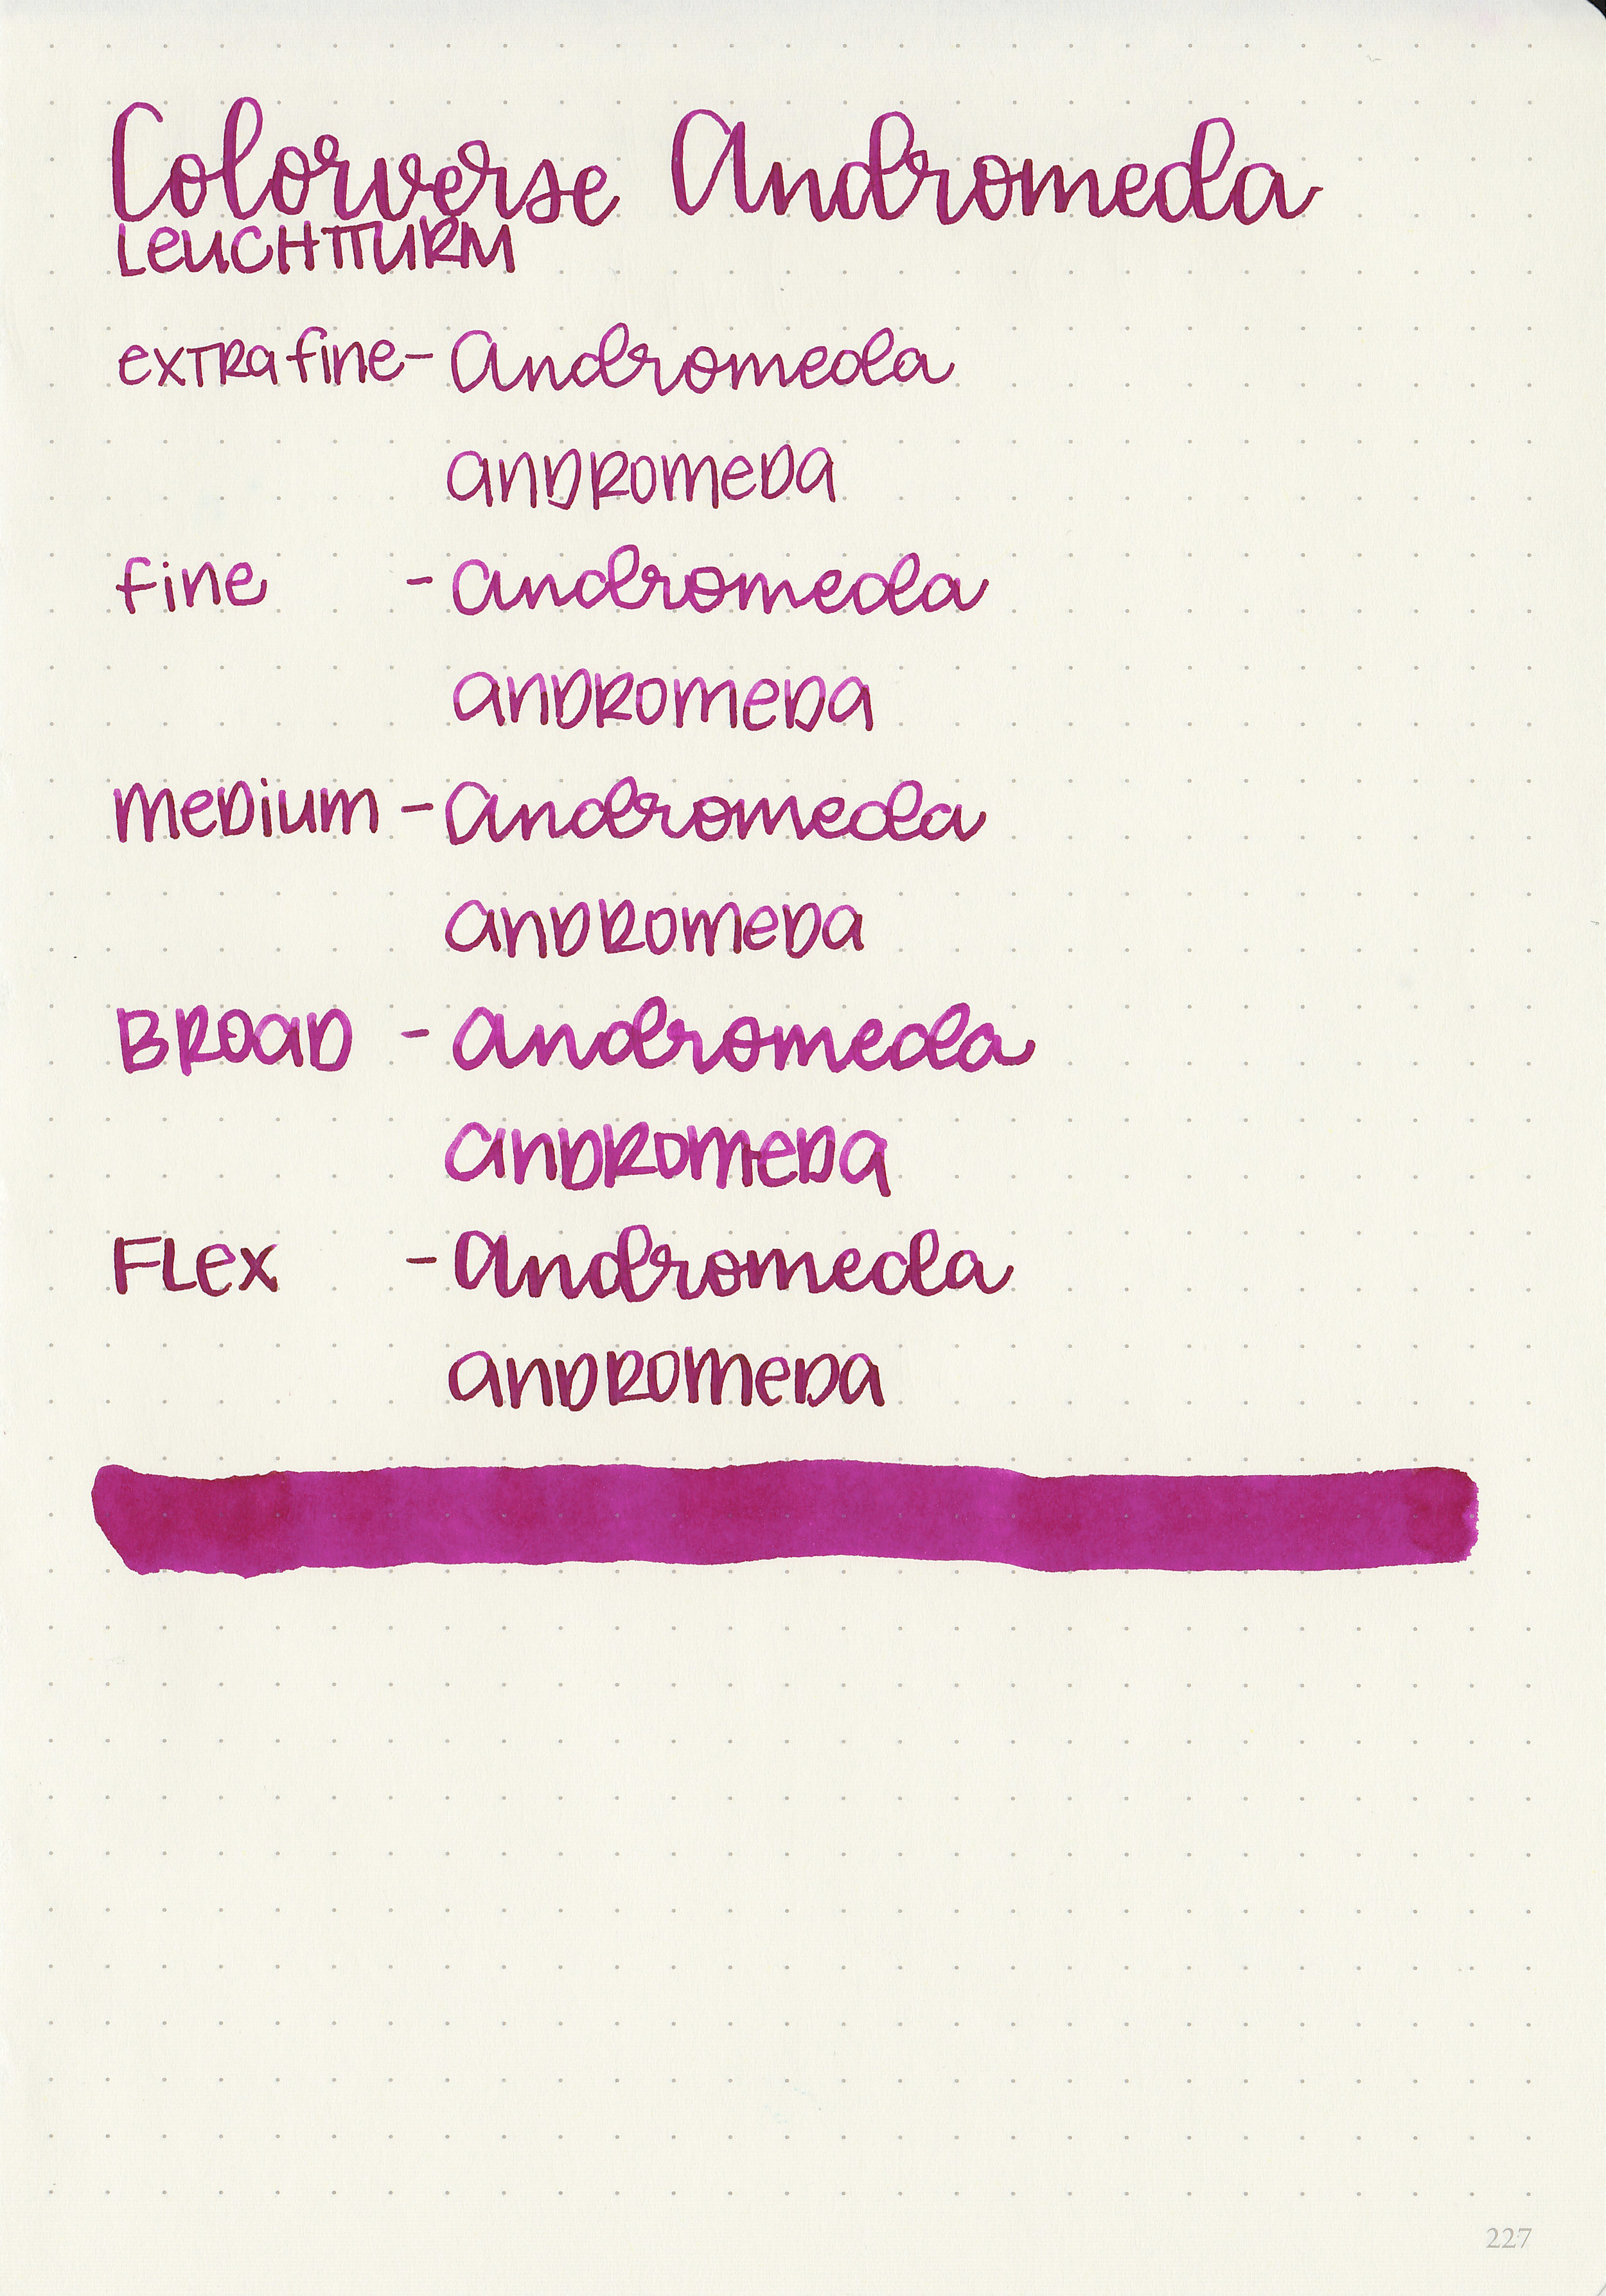 Colorverse Andromeda
LEUCHTTURM
extra fine - Andromeda
andromeda
fine - Andromeda
andromeda
medium - Andromeda
andromeda
BROAD - Andromeda
andromeda
FLex - Andromeda
andromeda
227